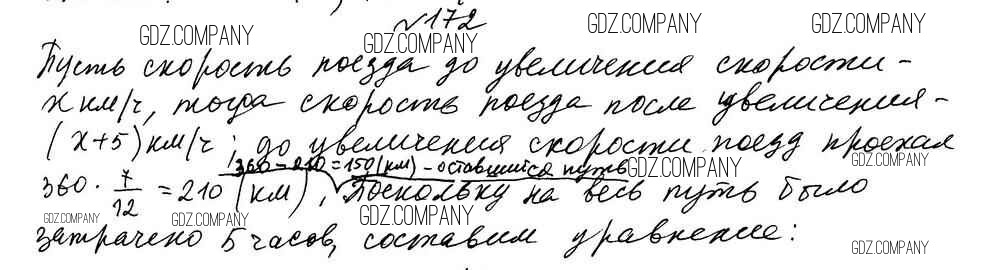 №172
Пусть скорость поезда до увеличения скорости -
x км/ч, тогда скорость поезда после увеличения -
(x+5) км/ч; до увеличения скорости поезд проехал
360-210=150(км) - оставшийся путь
360 · 7/12 = 210 (км), Поскольку на весь путь было
затрачено 5 часов, составим уравнение:
GDZ.COMPANY
GDZ.COMPANY
GDZ.COMPANY
GDZ.COMPANY
GDZ.COMPANY
GDZ.COMPANY
GDZ.COMPANY
GDZ.COMPANY
GDZ.COMPANY
GDZ.COMPANY
GDZ.COMPANY